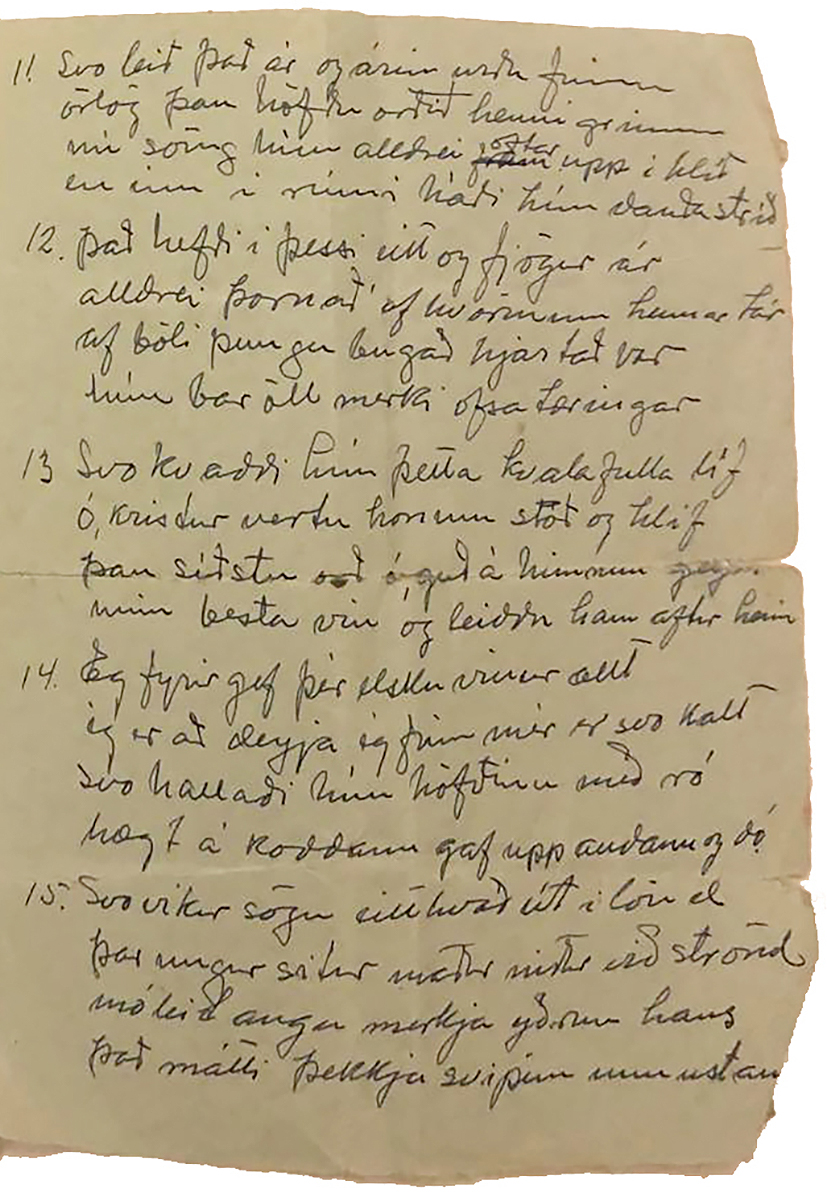 11. Svo leið það ár og árin urðu fimm
örlög þau höfðu orðið henni grimm
nú söng hún alldrei oftar upp í hlíð
en inn í rúmi háði hún dauðastríð
12. það hefði í þessi eitt og fjögur ár
alldrei þornað af hvörmum hennar tár
af böli þungu bugað hjartað var
hún bar öll merki ofsa tæringar
13 Svo kvaddi hún þetta kvalafulla líf
ó, kristur vertu honum stoð og hlíf
þau síðstu orð ó, guð á himnum
minn besta vin og leiddu hann aftur heim
14. Ég fyrirgef þér elsku vinur allt
ég er að deyja ég finn mér er svo kalt
svo hallaði hún höfðinu með ró
hægt á koddann gaf upp andann og dó.
15. Svo víkur sögu eitthvað út í lönd
þar ungur situr maður niður við strönd
mó leið augu merkja yðrun hans
það mátti þekkja svipinn unnustans